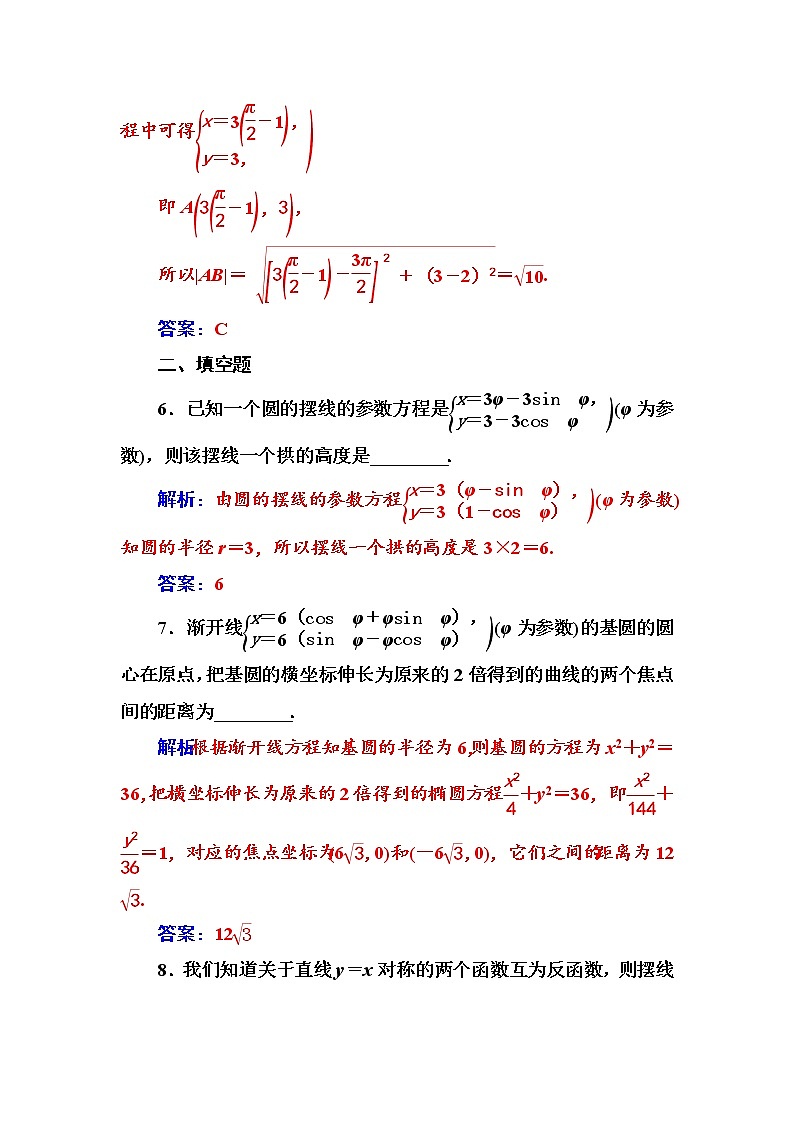 程中可得{x=3(π/2-1), y=3,
即 A(3(π/2-1), 3),
所以|AB|= √([3(π/2-1)-3π/2]²+(3-2)²)=√10.
答案:C
二、填空题
6.已知一个圆的摆线的参数方程是{x=3φ-3sin φ, y=3-3cos φ (φ 为参
数),则该摆线一个拱的高度是________.
解析:由圆的摆线的参数方程{x=3(φ-sin φ), y=3(1-cos φ) (φ 为参数)
知圆的半径 r=3,所以摆线一个拱的高度是 3×2=6.
答案:6
7.渐开线{x=6(cos φ+φsin φ), y=6(sin φ-φcos φ) (φ 为参数)的基圆的圆
心在原点,把基圆的横坐标伸长为原来的 2 倍得到的曲线的两个焦点
间的距离为________.
解析:根据渐开线方程知基圆的半径为 6,则基圆的方程为 x²+y²=
36,把横坐标伸长为原来的 2 倍得到的椭圆方程x²/4+y²=36,即x²/144+
y²/36=1,对应的焦点坐标为(6√3,0)和(-6√3,0),它们之间的距离为 12
√3.
答案:12√3
8.我们知道关于直线 y=x 对称的两个函数互为反函数,则摆线